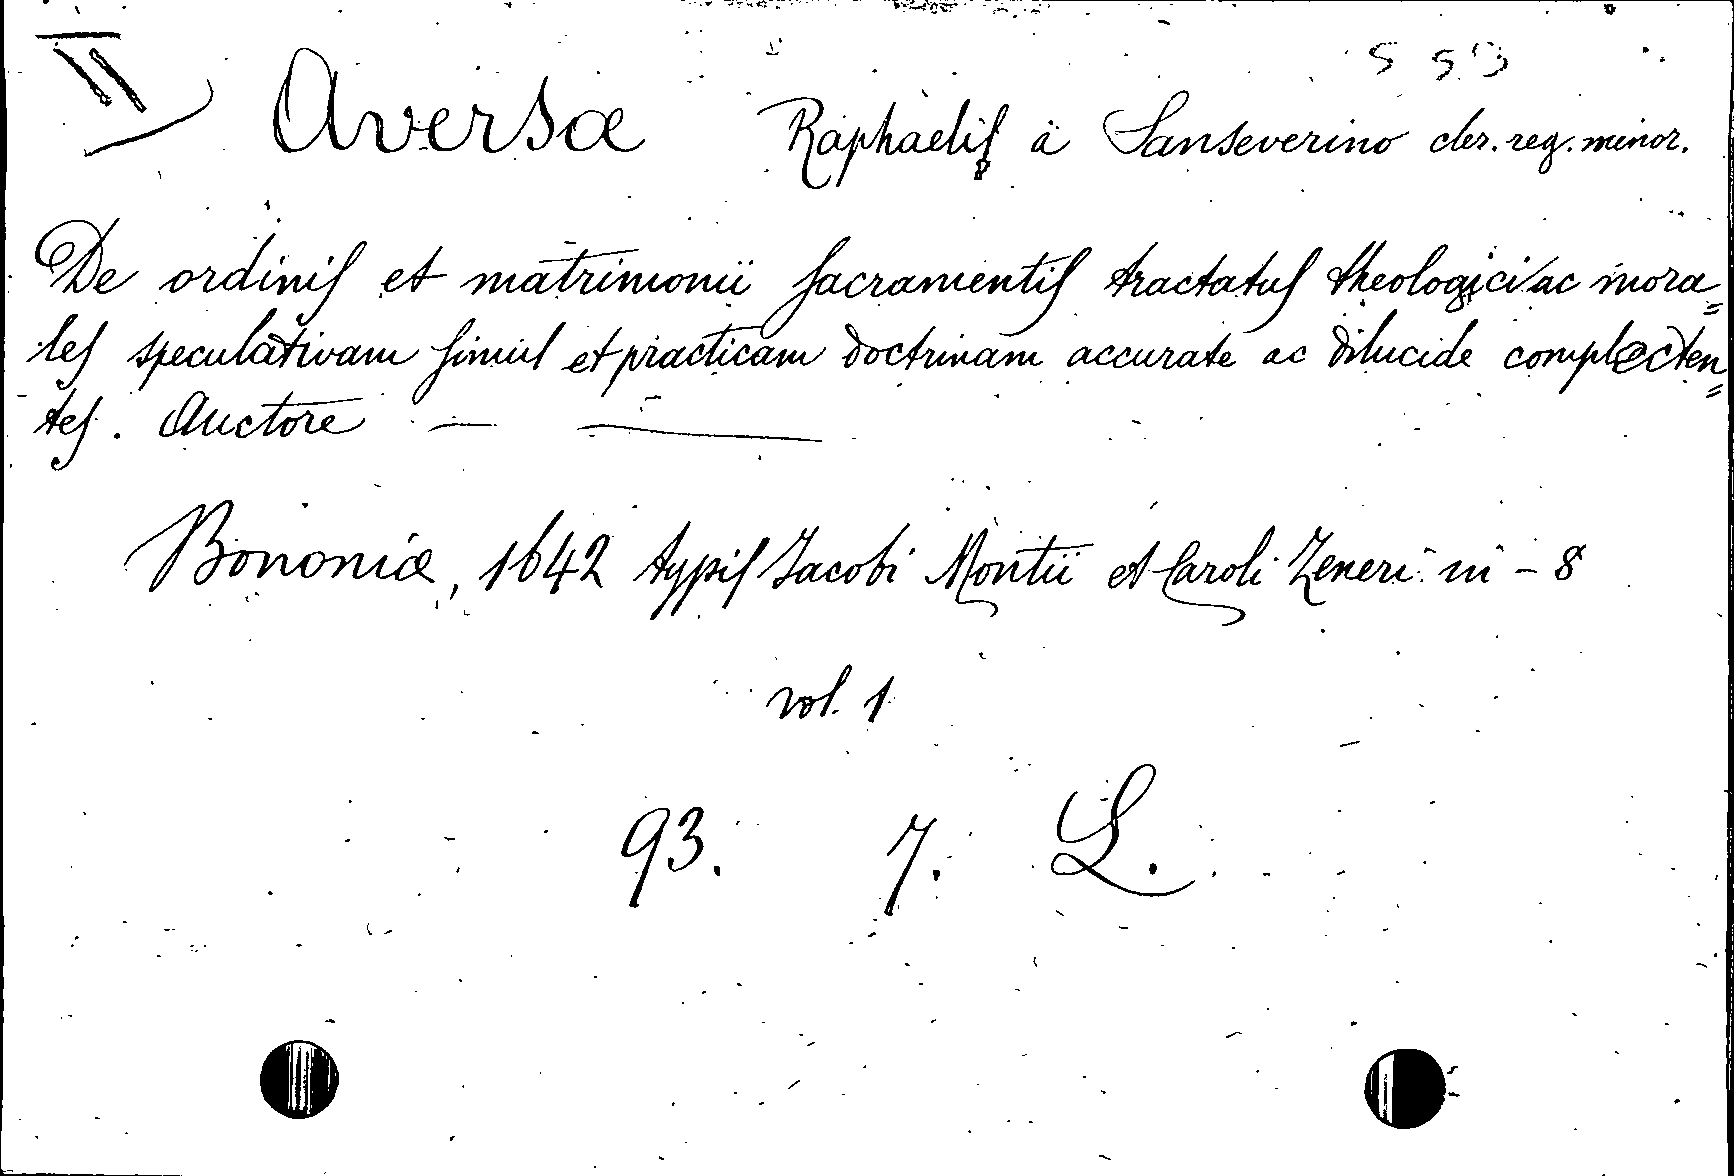 II
553
Aversæ Raphaelis à Sanseverino cler. reg. minor.
De ordinis et matrimonii sacramentis tractatus theologici ac mora=
les speculativam simul et practicam doctrinam accurate ac dilucide complecten=
tes. Auctore — —
Bononiæ, 1642 typis Jacobi Montii et Caroli Zeneri in - 8
vol. 1
93. 7. L.